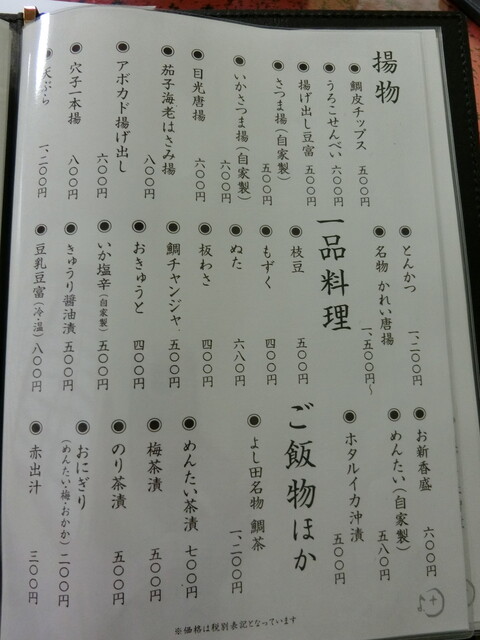 揚物
◉ 鯛皮チップス 五〇〇円
◉ うろこせんべい 六〇〇円
◉ 揚げ出し豆富 五〇〇円
◉ さつま揚（自家製） 五〇〇円
◉ いかさつま揚（自家製） 六〇〇円
◉ 目光唐揚 六〇〇円
◉ 茄子海老はさみ揚 八〇〇円
◉ アボカド揚げ出し 六〇〇円
◉ 穴子一本揚 八〇〇円
◉ 天ぷら 一、二〇〇円
◉ とんかつ 一、二〇〇円
◉ 名物 かれい唐揚 一、五〇〇円〜
一品料理
◉ 枝豆 五〇〇円
◉ もずく 四〇〇円
◉ ぬた 六八〇円
◉ 板わさ 四〇〇円
◉ 鯛チャンジャ 五〇〇円
◉ おきゅうと 四〇〇円
◉ いか塩辛（自家製） 五〇〇円
◉ きゅうり醤油漬 五〇〇円
◉ 豆乳豆富（冷・温） 八〇〇円
◉ お新香盛 六〇〇円
◉ めんたい（自家製） 五八〇円
◉ ホタルイカ沖漬 五〇〇円
ご飯物ほか
◉ よし田名物 鯛茶 一、二〇〇円
◉ めんたい茶漬 七〇〇円
◉ 梅茶漬 五〇〇円
◉ のり茶漬 五〇〇円
◉ おにぎり
（めんたい・梅・おかか） 二〇〇円
◉ 赤出汁 三〇〇円
※価格は税別表記となっています